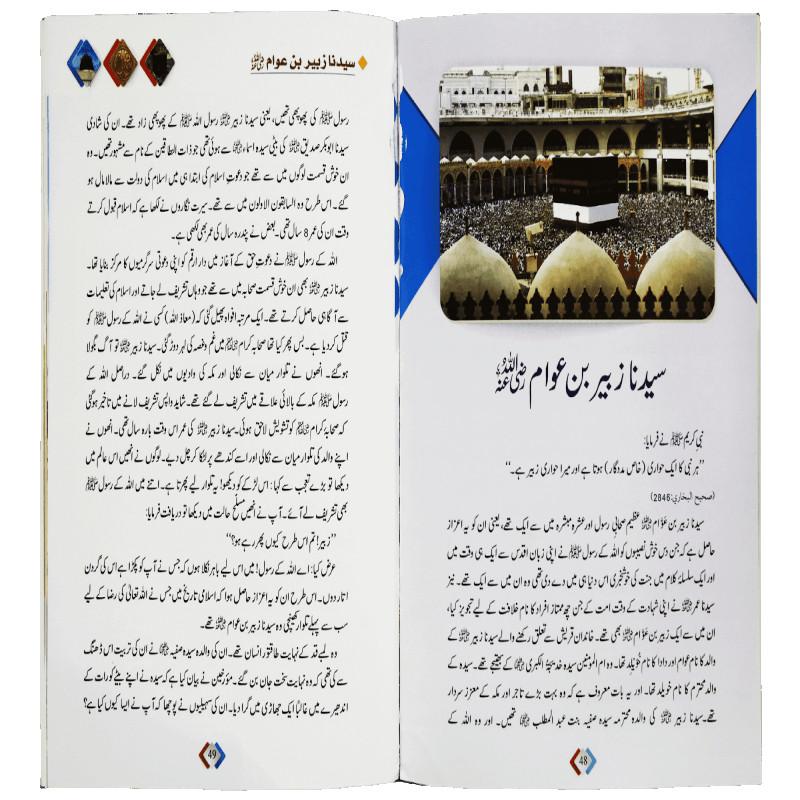 سیدنا زبیر بن عوام رضی اللہ عنہ
نبی کریم ﷺ نے فرمایا:
”ہر نبی کا ایک حواری (خاص مددگار) ہوتا ہے اور میرا حواری زبیر ہے۔“
(صحیح البخاري: 2846)
سیدنا زبیر بن عوّام ﷜ عظیم صحابیِ رسول اور عشرہ مبشرہ میں سے ایک تھے، یعنی ان کو یہ اعزاز
حاصل ہے کہ جن دس خوش نصیبوں کو اللہ کے رسول ﷺ نے اپنی زبان اقدس سے ایک ہی وقت میں
اور ایک سلسلۂ کلام میں جنت کی خوشخبری اس دنیا ہی میں دے دی تھی وہ ان میں سے ایک تھے۔ نیز
سیدنا عمر ﷜ نے اپنی شہادت کے وقت امت کے جن چھ ممتاز افراد کا نام خلافت کے لیے تجویز کیا،
ان میں سے ایک زبیر بن عوّام ﷜ بھی تھے۔ خاندان قریش سے تعلق رکھنے والے سیدنا زبیر ﷜ کے
والد کا نام عوام اور دادا کا نام خویلد تھا۔ وہ ام المؤمنین سیدہ خدیجۃ الکبریٰ ﷞ کے بھتیجے تھے۔ سیدہ کے
والد محترم کا نام خویلد تھا۔ اور یہ بات معروف ہے کہ وہ بہت بڑے تاجر اور مکہ کے معزز سردار
تھے۔ سیدنا زبیر ﷜ کی والدہ محترمہ سیدہ صفیہ بنت عبد المطلب ﷞ تھیں۔ اور وہ اللہ کے
48
سیدنا زبیر بن عوام ﷜
رسول ﷺ کی پھوپھی تھیں، یعنی سیدنا زبیر ﷜ رسول اللہ ﷺ کے پھوپھی زاد تھے۔ ان کی شادی
سیدنا ابوبکر صدیق ﷜ کی بیٹی سیدہ اسماء ﷞ سے ہوئی تھی جو ذات النطاقین کے نام سے مشہور تھیں۔ وہ
ان خوش قسمت لوگوں میں سے تھے جو دعوتِ اسلام کی ابتدا ہی میں اسلام کی دولت سے مالا مال ہو
گئے۔ اس طرح وہ السابقون الاولون میں سے تھے۔ سیرت نگاروں نے لکھا ہے کہ اسلام قبول کرتے
وقت ان کی عمر 8 سال تھی۔ بعض نے پندرہ سال کی عمر بھی لکھی ہے۔
اللہ کے رسول ﷺ نے دعوتِ حق کے آغاز میں دار ارقم کو اپنی دعوتی سرگرمیوں کا مرکز بنایا تھا۔
سیدنا زبیر ﷜ بھی ان خوش قسمت صحابہ میں سے تھے جو وہاں تشریف لے جاتے اور اسلام کی تعلیمات
سے آگاہی حاصل کرتے تھے۔ ایک مرتبہ افواہ پھیل گئی کہ (معاذ اللہ) کسی نے اللہ کے رسول ﷺ کو
قتل کر دیا ہے۔ بس پھر کیا تھا صحابہ کرام ﷢ میں غم و غصہ کی لہر دوڑ گئی۔ سیدنا زبیر ﷜ تو آگ بگولا
ہو گئے۔ انھوں نے تلوار میان سے نکالی اور مکہ کی وادیوں میں نکل گئے۔ دراصل اللہ کے
رسول ﷺ مکہ کے بالائی علاقے میں تشریف لے گئے تھے۔ شاید واپس تشریف لانے میں تاخیر ہو گئی
کہ صحابۂ کرام ﷢ کو تشویش لاحق ہوئی۔ سیدنا زبیر ﷜ کی عمر اس وقت بارہ سال تھی۔ انھوں نے
اپنے والد کی تلوار میان سے نکالی اور اسے کندھے پر لٹکا کر چل دیے۔ لوگوں نے انھیں اس عالم میں
دیکھا تو بڑے تعجب سے کہا: اس لڑکے کو دیکھو! یہ تلوار لیے پھرتا ہے۔ اتنے میں اللہ کے رسول ﷺ
بھی تشریف لے آئے۔ آپ نے انھیں مسلح حالت میں دیکھا تو دریافت فرمایا:
”زبیر! تم اس طرح کیوں پھر رہے ہو؟“
عرض کیا: اے اللہ کے رسول! میں اس لیے باہر نکلا ہوں کہ جس نے آپ کو پکڑا ہے اس کی گردن
اتار دوں۔ اس طرح ان کو یہ اعزاز حاصل ہوا کہ اسلامی تاریخ میں جس نے اللہ تعالیٰ کی رضا کے لیے
سب سے پہلے تلوار کھینچی وہ سیدنا زبیر بن عوام ﷜ تھے۔
وہ لمبے قد کے نہایت طاقتور انسان تھے۔ ان کی والدہ سیدہ صفیہ ﷞ نے ان کی تربیت اس ڈھنگ
سے کی تھی کہ وہ نہایت سخت جان بن گئے۔ مؤرخین نے بیان کیا ہے کہ سیدہ نے اپنے بیٹے کو رات کے
اندھیرے میں غالباً ایک جھاڑی میں گرا دیا۔ ان کی سہیلیوں نے پوچھا کہ آپ نے ایسا کیوں کیا ہے؟
49